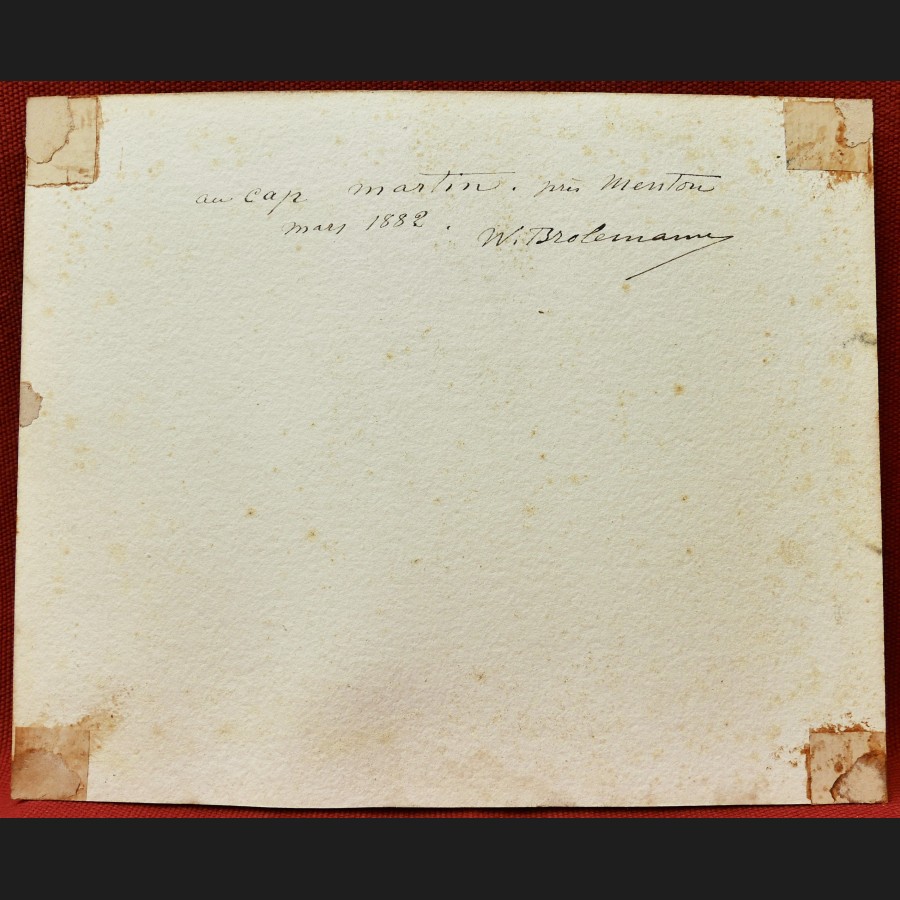 au cap martin. près Menton
mars 1882. W. Brolemann